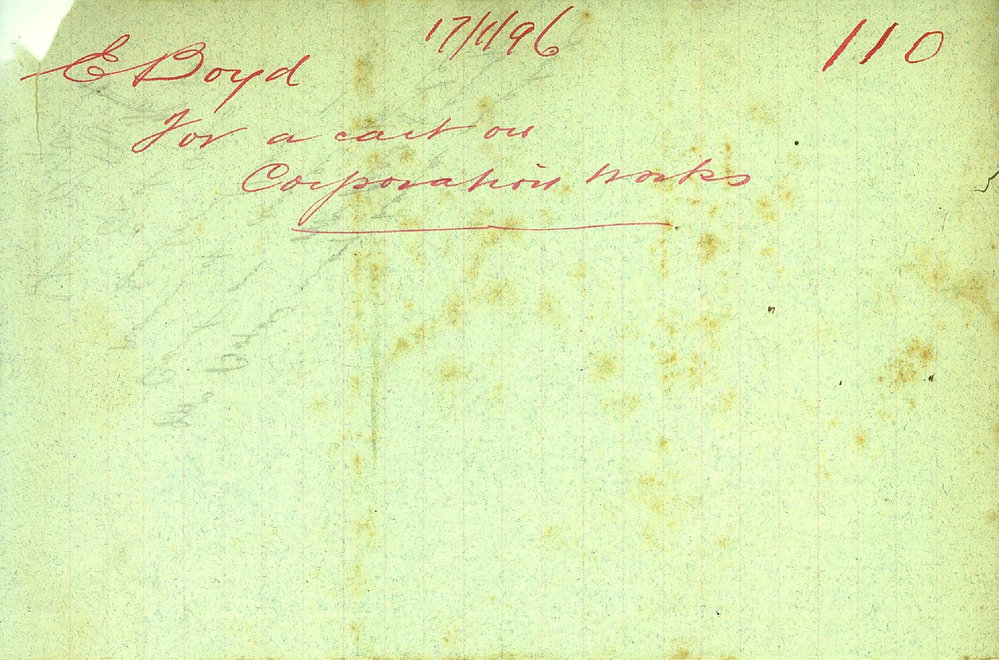 17/11/96
110
E Boyd
for a cart on
Corporation works